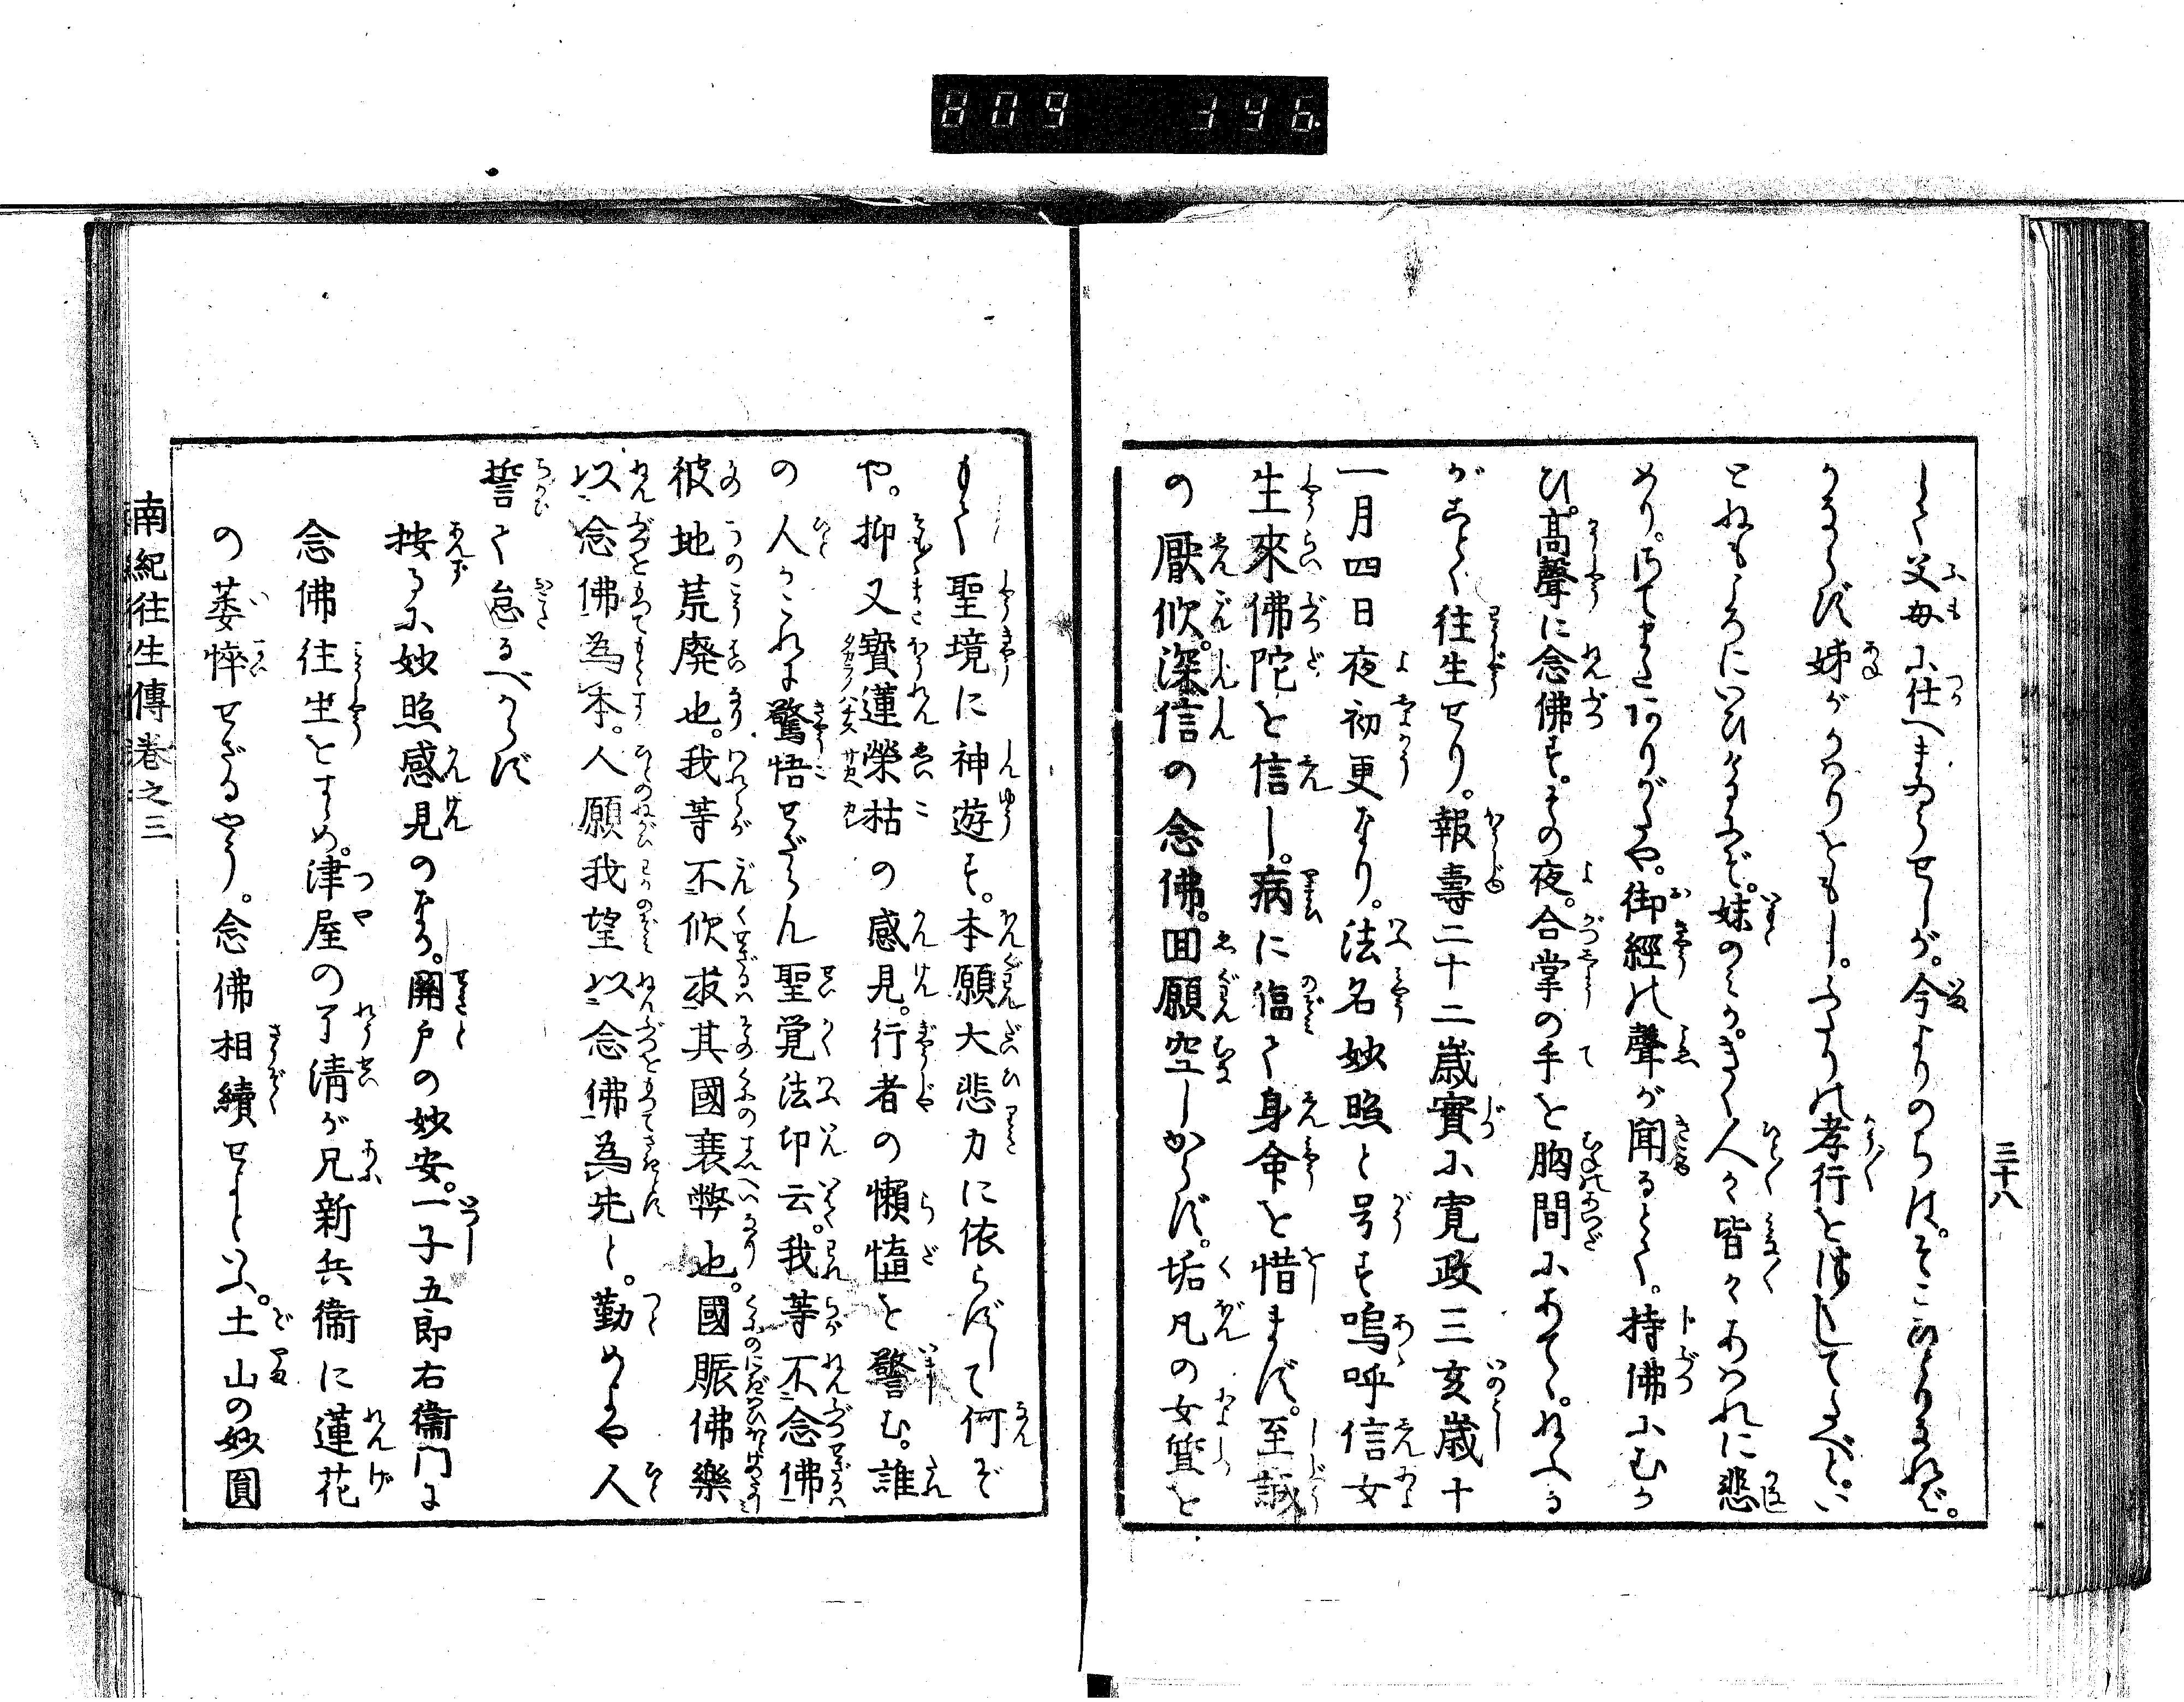 809 396.
三十八
して父母に仕へまゐらせしが。今よりのちは。そこひとりなれば。
かならず姉がかはりをもし。ふたりの孝行を
とねもころにいひけるにぞ。妹のみか。きく人々皆々あはれに悲
めり。さてまたありがたや。御經の聲が聞るとて。持佛にむか
ひ。高聲に念佛す。その夜。合掌の手を胸間にあて。ねふる
がごとく往生せり。報壽二十二歳實に寛政三亥歳十
一月四日夜初更なり。法名妙照と号す嗚呼信女
生來佛陀を信し。病に臨て身命を惜まず。至誠
の厭欣。深信の念佛。回願空しからず。垢凡の女質を
もて聖境に神遊す。本願大悲力に依らずして何ぞ
や。抑又寳蓮榮枯の感見。行者の懶惰を警む。誰
の人かこれに驚悟せざらん聖覚法印云。我等不念佛
彼地荒廃也。我等不欣求其國衰弊也。國賑佛樂
以念佛為本。人願我望以念佛為先と。勤めよや人
誓て怠るべからず
按るに妙照感見のなる。開戸の妙安。一子五郎右衞門に
念佛往生をすゝめ。津屋の了清が兄新兵衞に蓮花
の萎悴せざるやう。念佛相續せよといふ。土山の妙圓
南紀往生傳巻之三